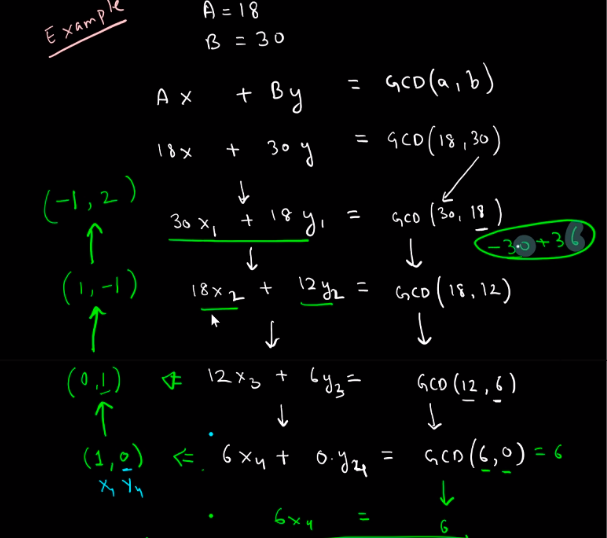 Example
A = 18
B = 30
Ax + By = GCD(a, b)
18x + 30y = GCD(18, 30)
(-1, 2) 30x₁ + 18y₁ = GCD(30, 18)
-30 + 36
(1, -1) 18x₂ + 12y₂ = GCD(18, 12)
(0, 1) ⇐ 12x₃ + 6y₃ = GCD(12, 6)
(1, 0) ⇐ 6x₄ + 0.y₄ = GCD(6, 0) = 6
x₄ y₄
6x₄ = 6